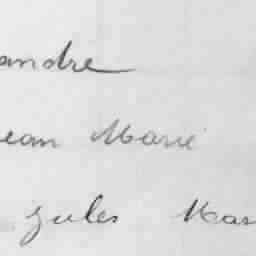 andre
ean Marie
Jules Mar